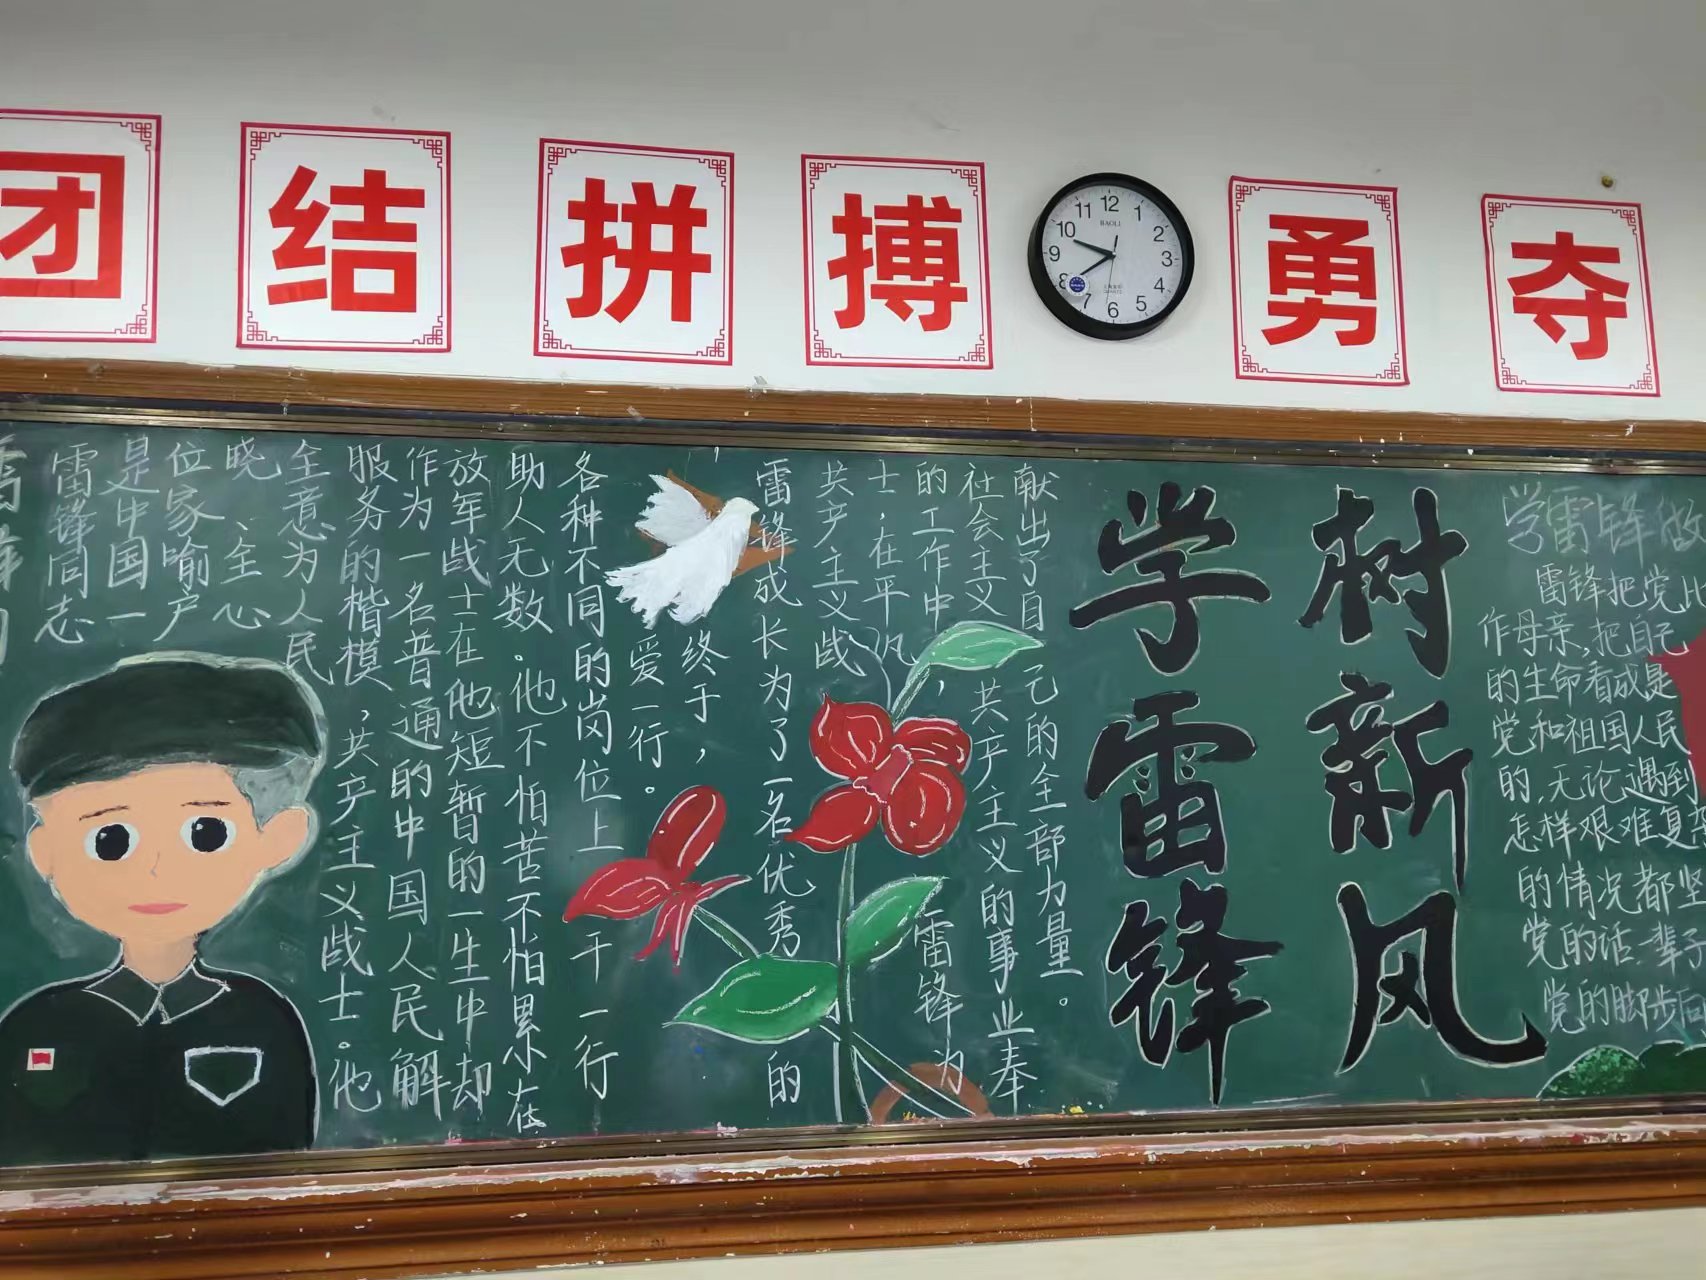 团结拼搏勇夺
12
1
2
3
4
5
6
7
8
9
10
11
BAOLI
雷锋同志
是中国一
位家喻户
晓、全心
全意为人民
服务的楷模,共产主义战士.他
作为一名普通的中国人民解
放军战士在他短暂的一生中却
助人无数.他不怕苦不怕累在
各种不同的岗位上干一行
爱一行。
终于,
雷锋成长为了一名优秀的
共产主义战
士,在平凡
的工作中,雷锋为
社会主义共产主义的事业奉
献出了自己的全部力量。
学雷锋
树新风
学雷锋做
雷锋把党比
作母亲,把自己
的生命看成是
党和祖国人民
的,无论遇到
怎样艰难复杂
的情况都坚
党的话.一辈子
党的脚步后